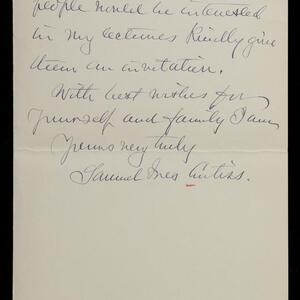 people would be interested
in my lectures kindly give
them an invitation.
With best wishes for
yourself and family I am
Yours very truly
Samuel Ives Curtiss.